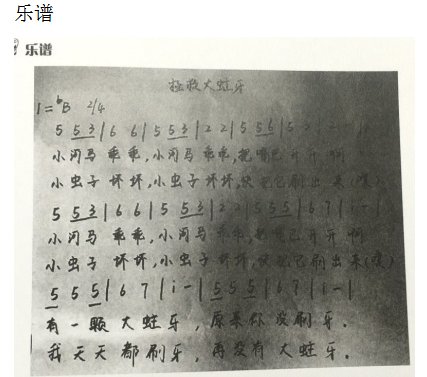 乐谱
乐谱
拯救大蛀牙
1=ᵇB 2/4
5 5 3 | 6 6 | 5 5 3 | 2 2 | 5 5 6 | 5
小河马 乖乖,小河马 乖乖,把嘴巴 开开 啊
小虫子 坏坏,小虫子 坏坏,快把它刷出 来(嘿)
5 5 3 | 6 6 | 5 5 3 | 2 2 | 5 5 5 | 6 7 | i - |
小河马 乖乖,小河马 乖乖,把嘴巴 开开 啊
小虫子 坏坏,小虫子 坏坏,快把它刷出来(嘿)
5 5 5 | 6 7 | i - | 5 5 5 | 6 7 | i - |
有一颗 大蛀牙,原来你没刷牙.
我天天都刷牙,再没有大蛀牙.